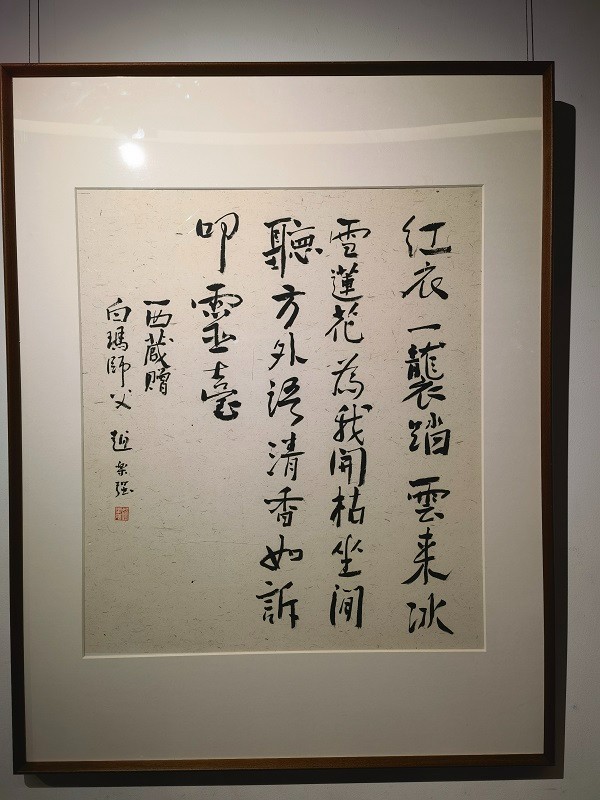 紅衣一襲踏雲来冰
雪蓮花為我開枯坐閒
聽方外语清香如訴
叩靈臺
西藏贈
白瑪師父 趙